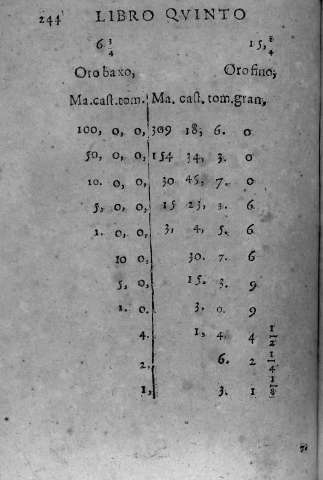 244 LIBRO QVINTO
6 3/4 15, 2/4
Oro baxo, Oro fino,
Ma. cast. tom. Ma. cast. tom. gran,
100, 0, 0, 309 18, 6. 0
50, 0, 0, 154 34, 3. 0
10. 0, 0, 30 45, 7. 0
5, 0, 0, 15 23, 3. 6
1. 0, 0, 3, 4, 5. 6
10 0, 30. 7. 6
5, 0, 15. 3. 9
1. 0. 3. 0. 9
4. 1, 4. 4 1/2
2, 6. 2 1/4
1, 3. 1 1/8